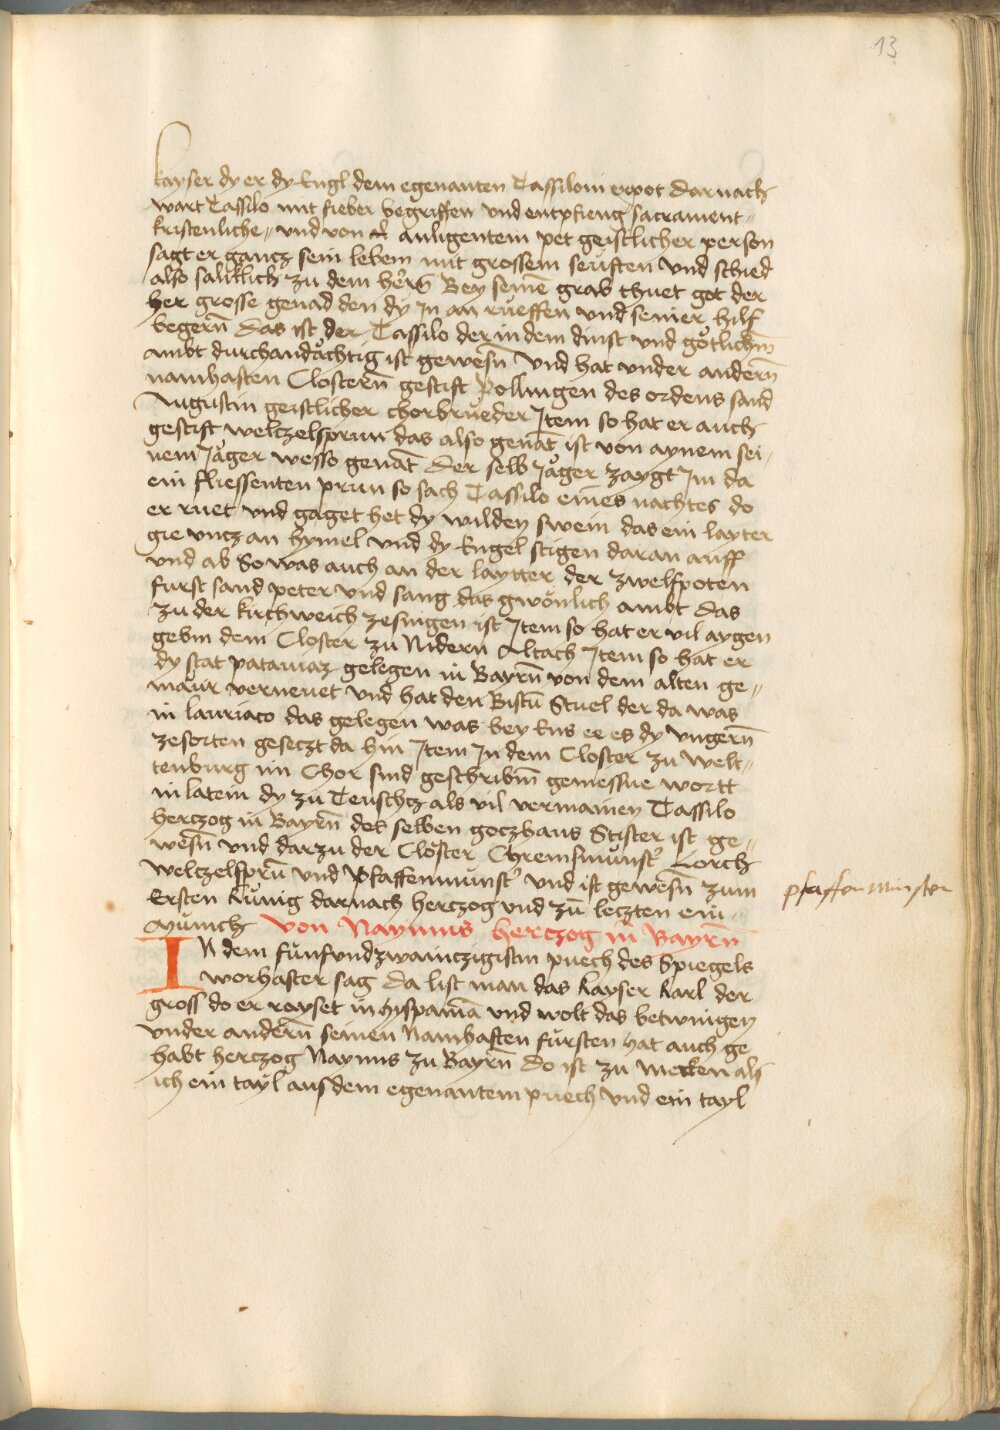 13
kayser dy er dy Engl dem egenanten Tassiloni erpot Darnach
wart Tassilo mit fieber begriffen vnd entpfieng sacrament
kristenliche vnd von anligentem pet geistlicher person
sagt er gancz sein lebem mit grossem seuften vnd schied
also säliklich zu dem Bey seinē grab thuet got der
her grosse genad den dy In an rueffen vnd seiner hilf
begerñ Das ist der Tassilo der in dem dinst vnd gotlichm̄
ambt durchandachtig ist gewesñ vnd hat vnder anderñ
namhaften Closterñ gestift Pollingen des ordens sand
Augustin geistlicher chorbrueder Item so hat er auch
gestift weltzelsprun das also genāt ist von aynem sei
nem Jager wesso genāt Der selb Jager zaygt Im da
ein fliessenten prun so sach Tassilo eines nachtes do
er ruet vnd gaget het dy wilden swein das ein layter
gie vncz an hymel vnd dy Engel stigen daran auff
vnd ab So was auch an der laytter der zwelfpoten
furst sand peter vnd sang das gwonlich ambt das
zu der kirchweich zesingen ist Item so hat er vil aygen
gebm dem Closter zu Nidern Altach Item so hat er
dy stat patauiaz gelegen in Bayrñ von dem alten ge
maur verneuet vnd hat den Bistū Stuel der da was
in lauriaco das gelegen was bey Ens ee es dy vngerñ
zestorten geseczt da hin Item In dem Closter zu welt
tenburg im Chor sind geschribm̄ gemessne wortt
in latein dy zu Teuschcz als vil vermainen Tassilo
herczog in Bayrñ des selben goczhaus Stifter ist ge
wesñ vnd darzu der Closter Chremsmunst' Lorch
weltzelsprū vnd Pfaffenmunst' vnd ist gewesñ zum
Ersten kunig darnach herczog vnd zū leczten ein
Munich Von Naymus herczog in Bayrñ
pfaffen minster
IN dem funfvndzwainczigistm puech des Spiegels
worhafter sag Da list man das kayser karl der
gross do er rayset in hyspaniā vnd wolt das betwingen
vnder anderñ seinen Namhaften fursten hat auch ge
habt herczog Naymus zu Bayrñ Do ist zu merken als
ich ein tayl aus dem egenantem puech vnd ein tayl